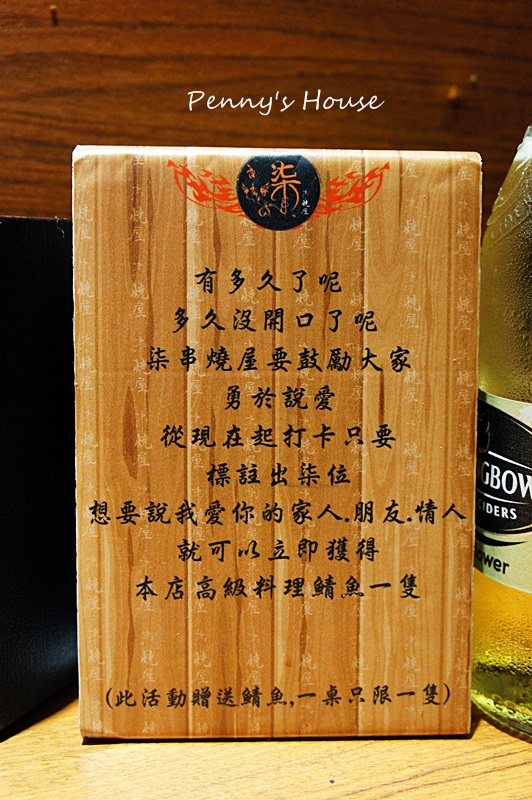 Penny's House
柒
燒屋
有多久了呢
多久沒開口了呢
柒串燒屋要鼓勵大家
勇於說愛
從現在起打卡只要
標註出柒位
想要說我愛你的家人.朋友.情人
就可以立即獲得
本店高級料理鯖魚一隻
(此活動贈送鯖魚,一桌只限一隻)
GBOW
CIDERS
ower